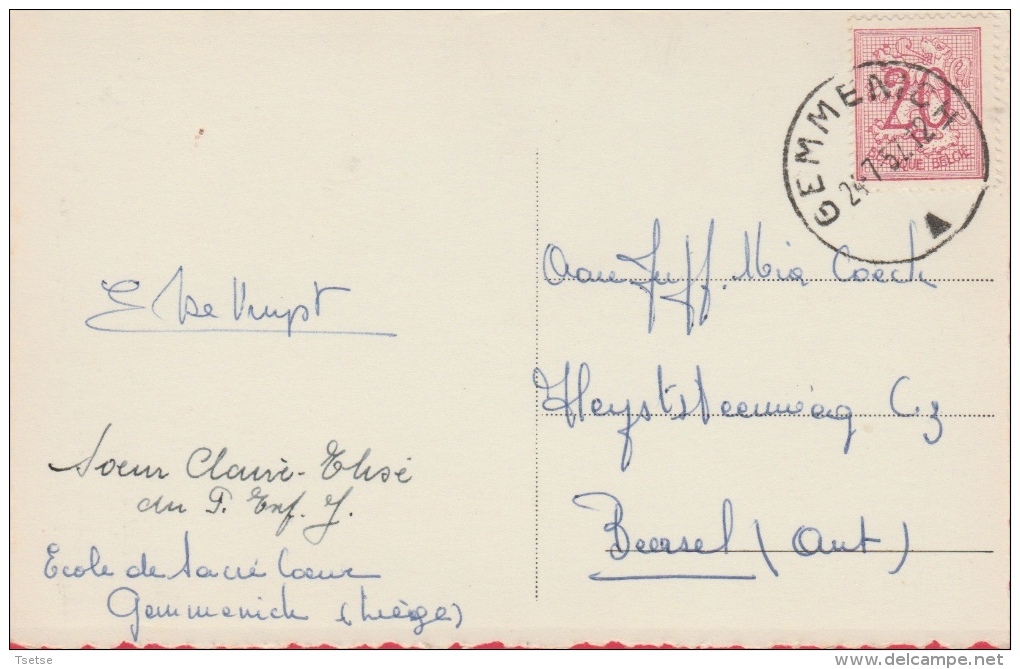 GEMMENICH
24-7 12
20
BELGIQUE BELGIE
E De Kuyst
Soeur Claire-Elisé
du P. Enf. J.
Ecole de Sacré Coeur
Gemmenich (Liège)
Aan Juff. Mia Coeck
Heystsesteenweg C3
Beersel (Ant)
Tsetse
www.delcampe.net